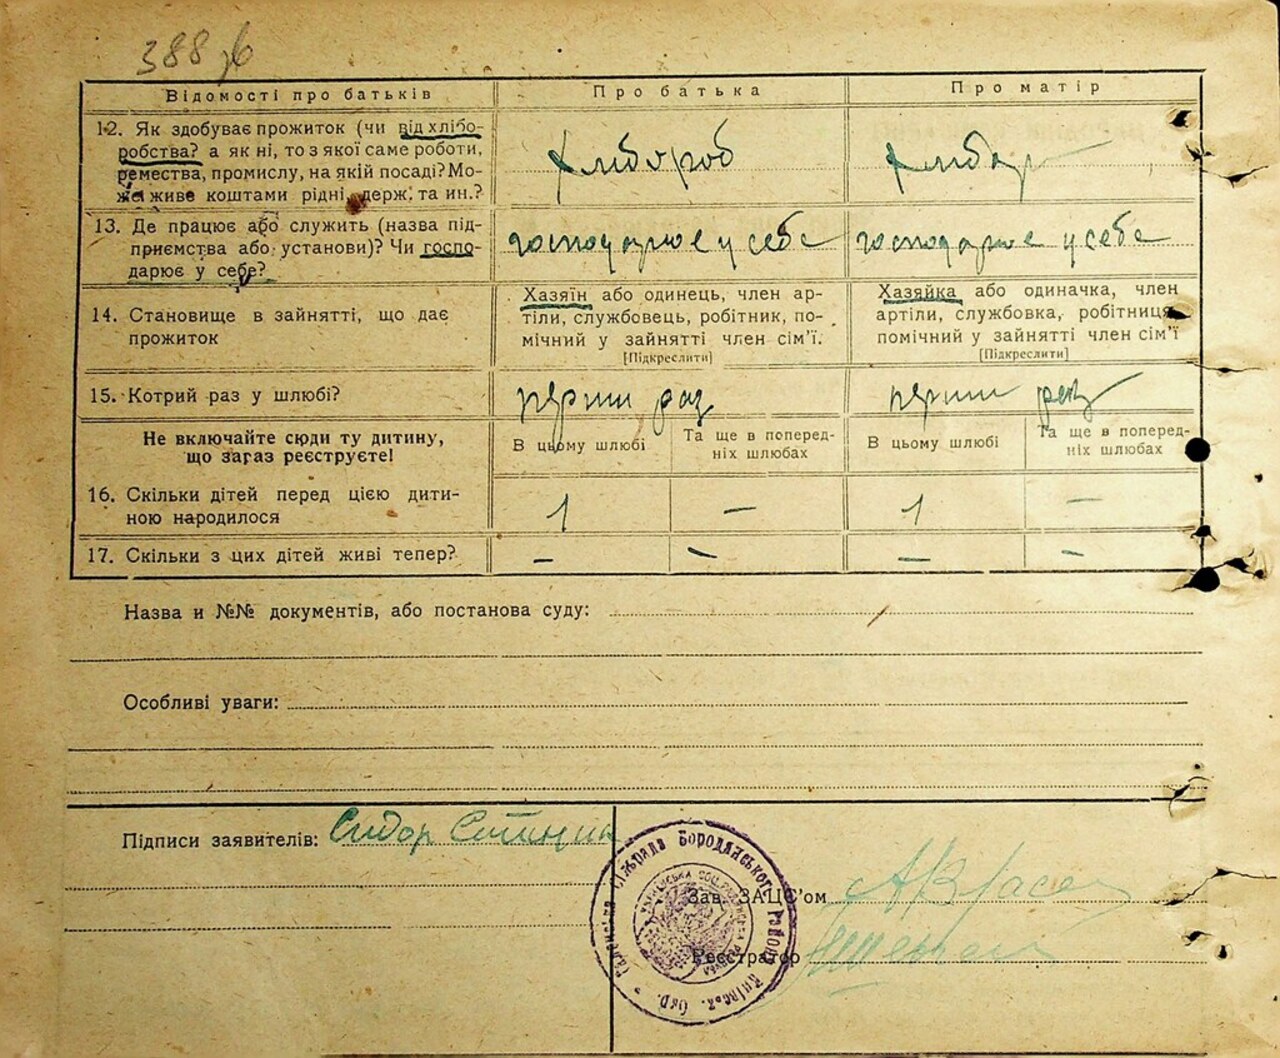 388 зв
Відомості про батьків
Про батька
Про матір
12. Як здобуває прожиток (чи від хлібо-
робства? а як ні, то з якої саме роботи,
ремества, промислу, на якій посаді? Мо-
же живе коштами рідні, держ. та ин.?
хлибороб
хлибор
13. Де працює або служить (назва під-
приємства або установи)? Чи госпо-
дарює у себе?
господарює у себе
господарює у себе
14. Становище в зайнятті, що дає
прожиток
Хазяїн або одинець, член ар-
тіли, службовець, робітник, по-
мічний у зайнятті член сім'ї.
[Підкреслити]
Хазяйка або одиначка, член
артіли, службовка, робітниця,
помічний у зайнятті член сім'ї
[Підкреслити]
15. Котрий раз у шлюбі?
перши раз
перши раз
Не включайте сюди ту дитину,
що загаз реєструєте!
В цьому шлюбі
Та ще в поперед-
ніх шлюбах
В цьому шлюбі
Та ще в поперед-
ніх шлюбах
16. Скільки дітей перед цією дити-
ною народилося
1 – 1 –
17. Скільки з цих дітей живі тепер?
– – – –
Назва и №№ документів, або постанова суду:
Особливі уваги:
Підписи заявителів: Сидор
Зав. ЗАЦС'ом
Реєстратор
сільрада Бородянського Району Київськ. Окр.